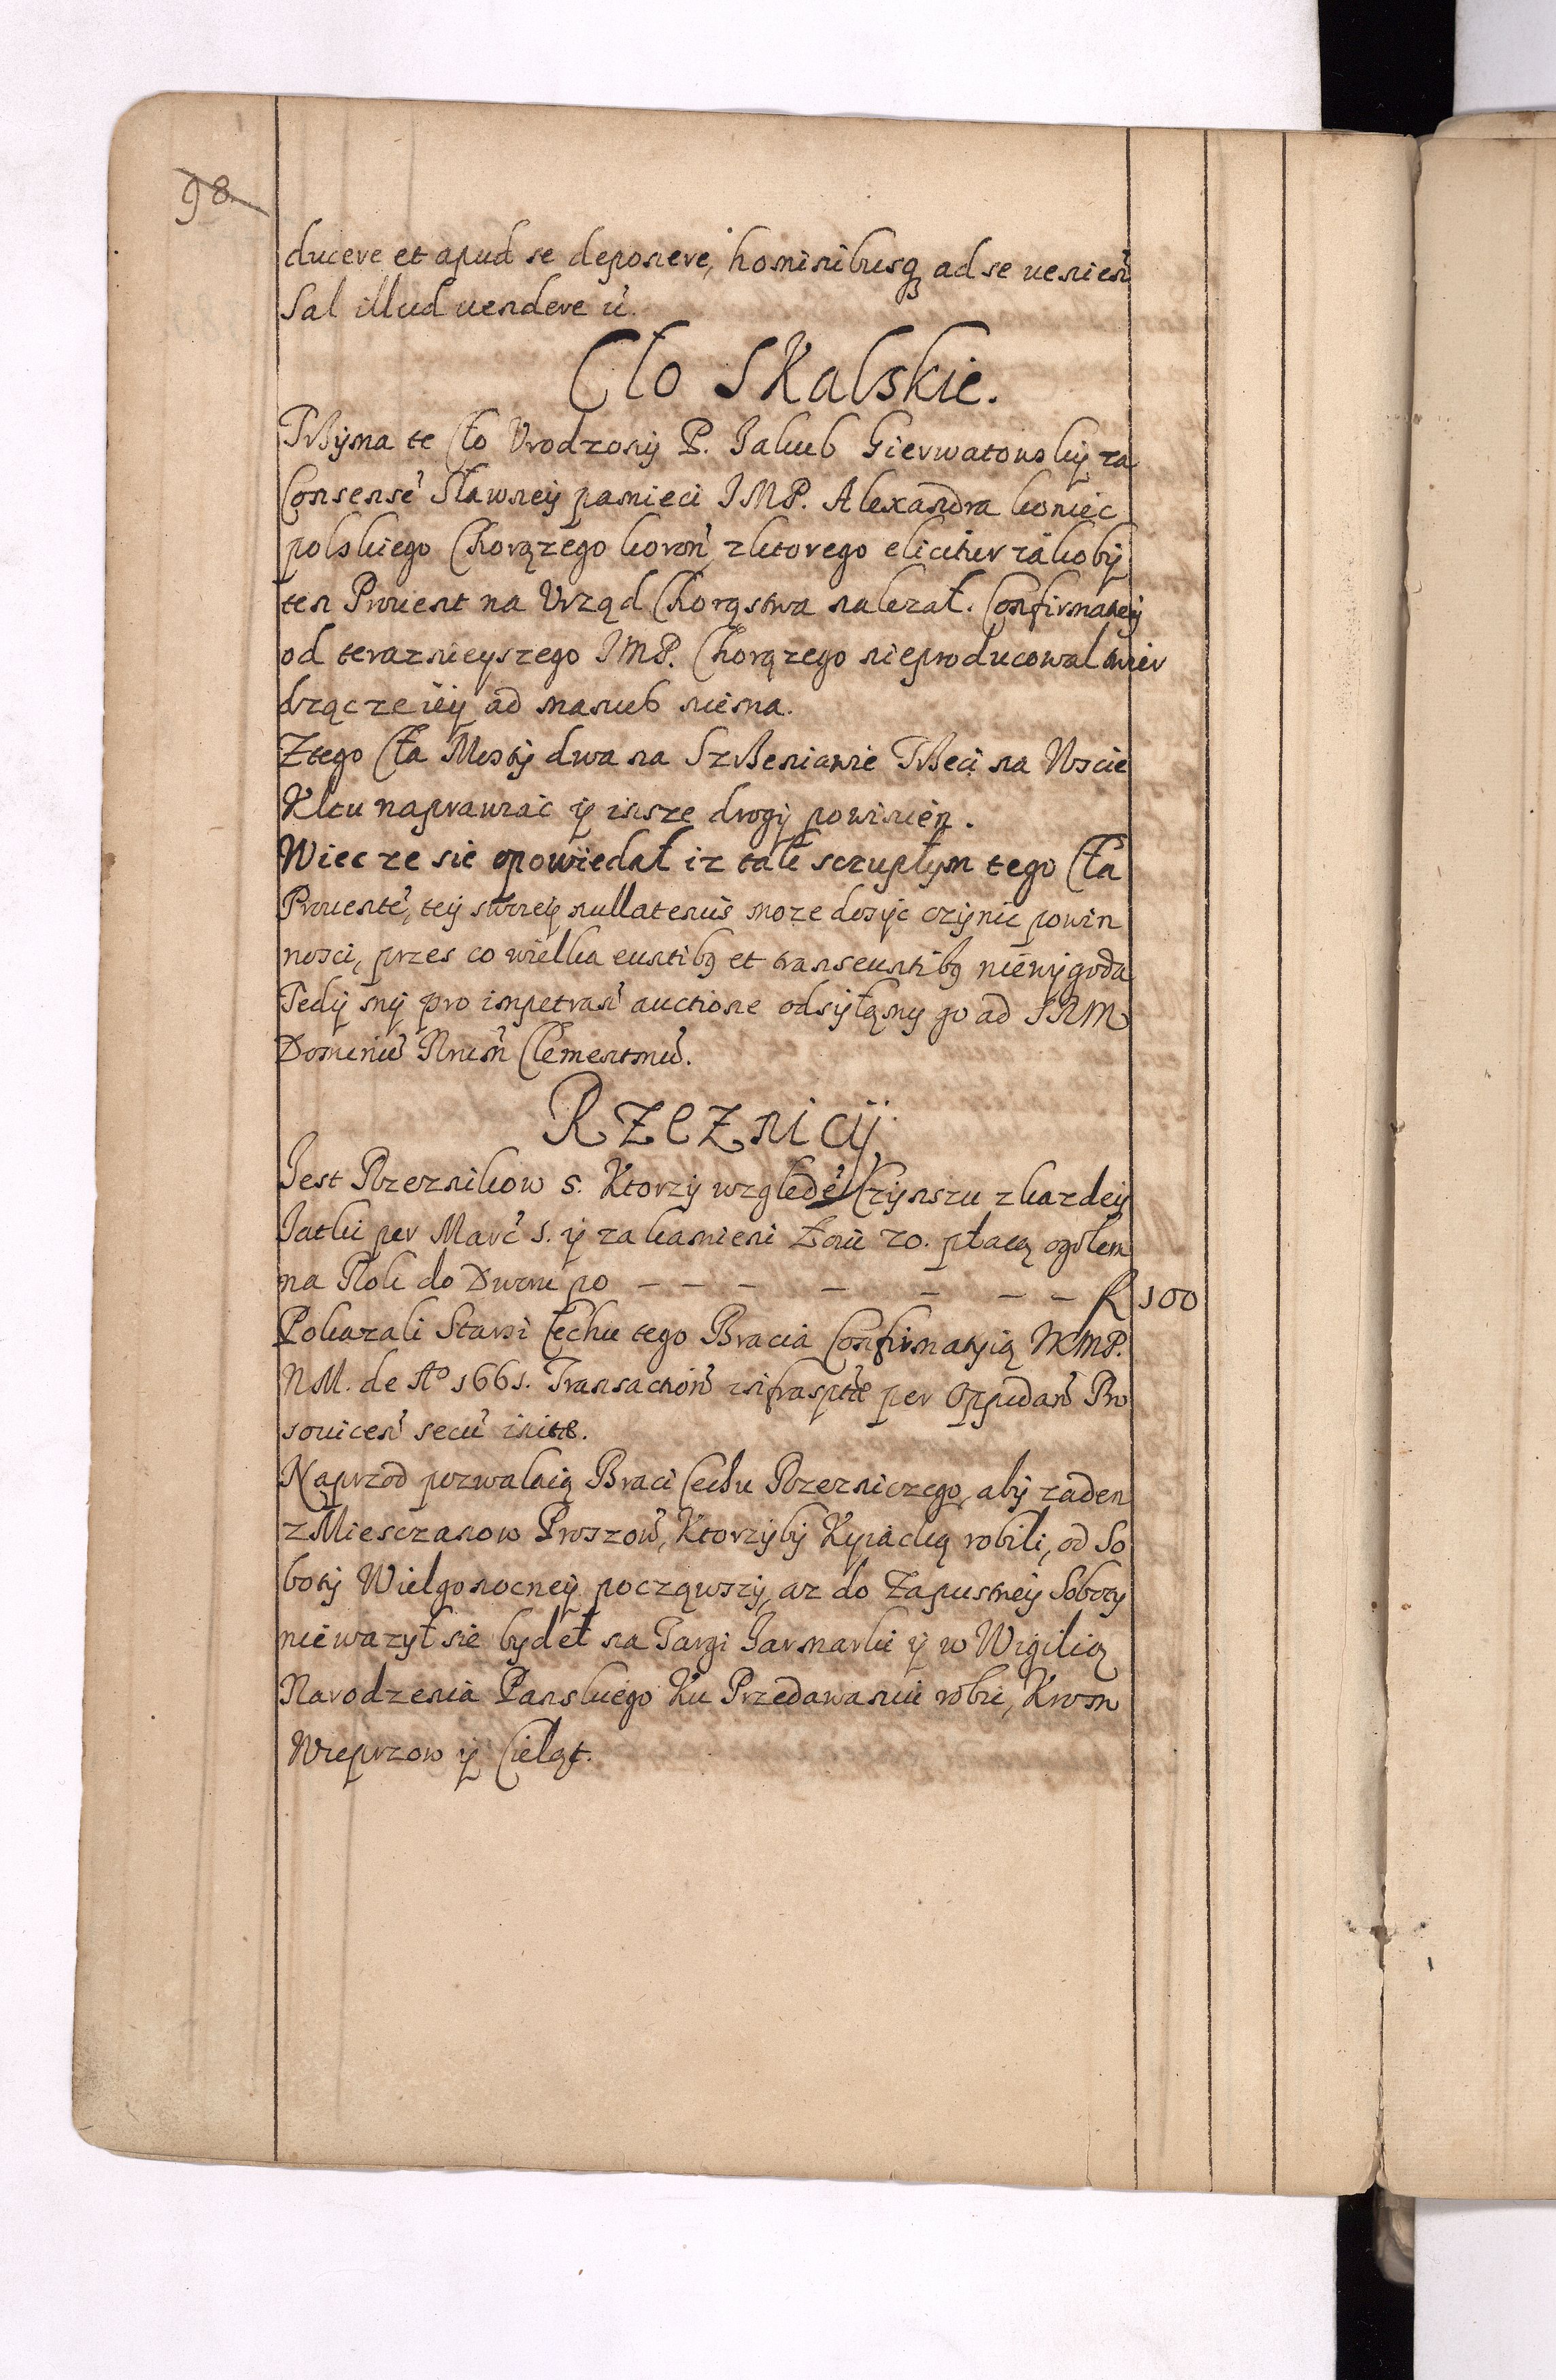 98
ducere et apud se deponere, hominibusq ad se venien
Sal illud vendere
Cło Skalskie.
Trzyma te Cło Vrodzony P. Jakub Gierwatowsky za
Consense Sławney pamieci JMP. Alexandra koniec
polskiego Chorązego koron, z ktorego elicitur iakoby
ten Prouent na Vrząd Chorąstwa nalezał. Confirmatiey
od teraznieyszego JMP. Chorązego nieproducował twier
dząc ze iey ad manus niema.
Z tego Cła Mosty dwa na Szrzeniawie Trzeci na Vscie
Kłcu naprawiac y insze drogy powinien.
Wiec ze sie opowiedał iz tak sczupłym tego Cła
Prouente, tey swoiey nullatenus moze dosyc czynic powin
nosci, przes co wielka euntibus et transeuntibus niewygoda
Tedy my pro impetran auctione odsyłamy go ad SRM
Dominu Nrum Clementmu.
Rzeznicy
Jest Rzeznikow 5. Ktorzy wzglede Czynszu z kazdey
Jatki per Marc 1. y za kamieni Łoiu 20. płacą ogołem
na Rok do Dworu po – – – – – – – f 100
Pokazali Starsi Cechu tego Bracia Confirmatyią WKMP.
NM. de Ao 1661. Transaction infrasptæ per Oppidan Pro
souicen secu initæ.
Naprzod pozwalaią Braci Cechu Rzezniczego, aby zaden
z Miesczanow Proszow, Ktorzyby Kyiacką robili, od So
boty Wielgonocney począwszy, az do Zapustney Soboty
niewazył sie bydeł na Targi Jarmarki y w Wigilią
Narodzenia Panskiego Ku Przedawaniu robic, Krom
Wieprzow y Cieląt.